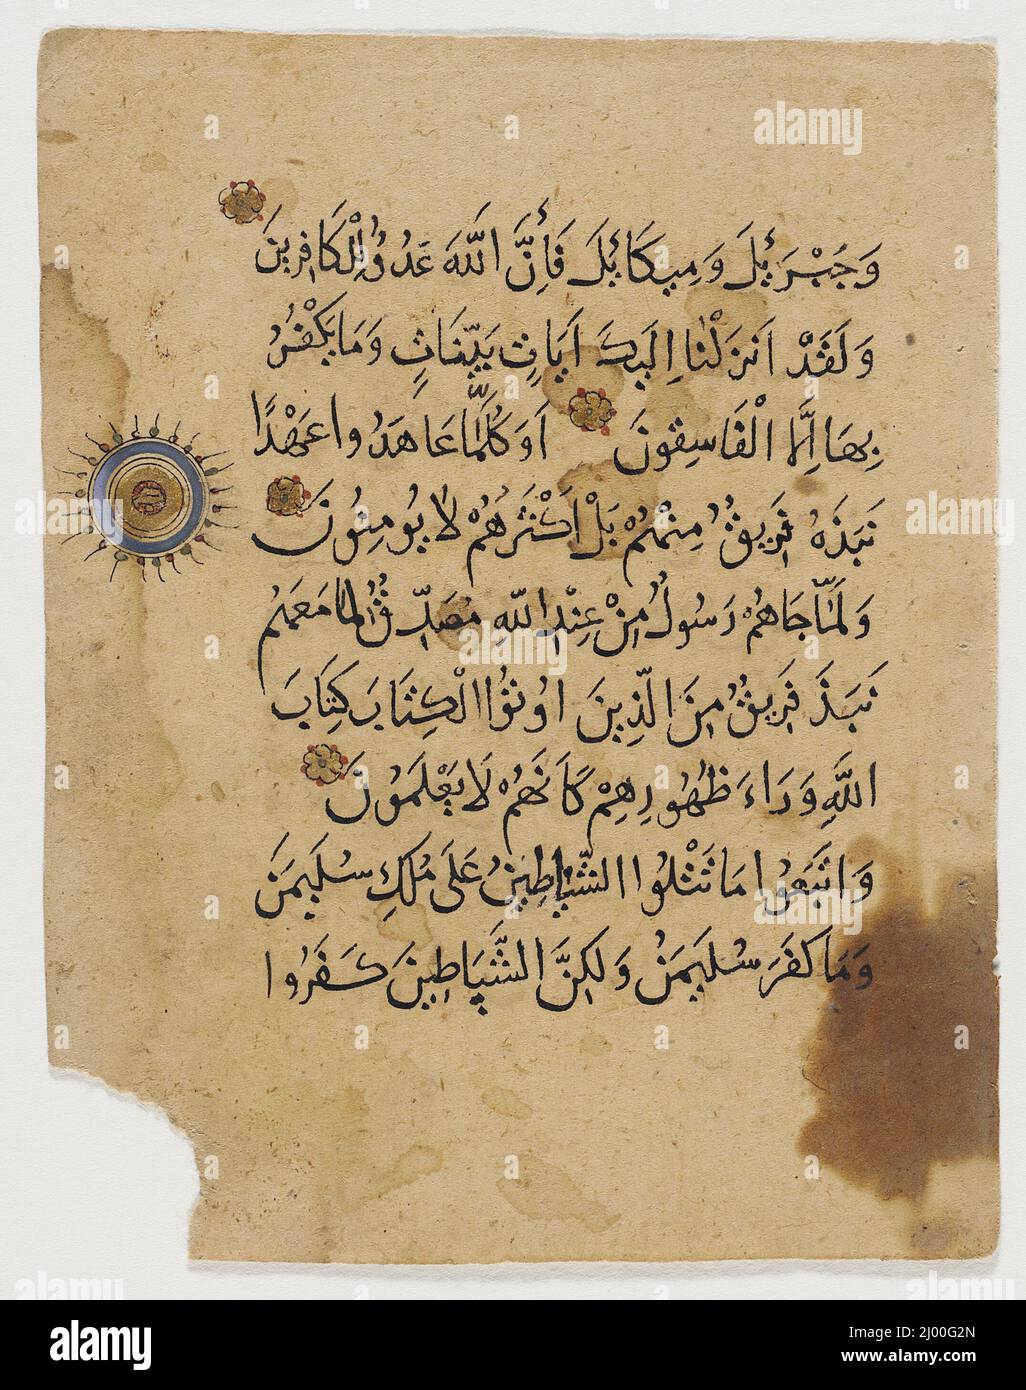 وَجُبْرَئِلَ وَمِيكَائِلَ فَأِنَّ اللَّهَ عَدُوٌّ لِلْكَافِرِينَ
وَلَقَدْ اَنزَلْنَا اِلَيكَ اَيَاتٍ بَيِّنَاتٍ وَمَا يَكْفُرُ
بِهَا اِلَّا الْفَاسِقُونَ اَوَكُلَّمَا عَاهَدُوا عَهْدًا
نَبَذَهُ فَرِيقٌ مِنْهُمْ بَلْ اَكْثَرُهُمْ لَا يُومِنُونَ
وَلَمَّا جَاهُمْ رَسُولٌ مِنْ عِنْدِ اللَّهِ مُصَدِّقٌ لِمَا مَعَهُم
نَبَذَ فَرِيقٌ مِنَ الَّذِينَ اوُتُوا الْكِتَابَ كِتَابَ
اللَّهِ وَرَاءَ ظُهُورِهِمْ كَاَنَّهُمْ لَا يَعْلَمُونَ
وَاتَّبَعُوا مَا تَتْلُوا الشَّيَاطِينُ عَلَى مُلْكِ سُلَيمَنَ
وَمَا كَفَرَ سُلَيمَنُ وَلَكِنَّ الشَّيَاطِينَ كَفَرُوا
alamy
alamy
Image ID: 2J00G2N
www.alamy.com